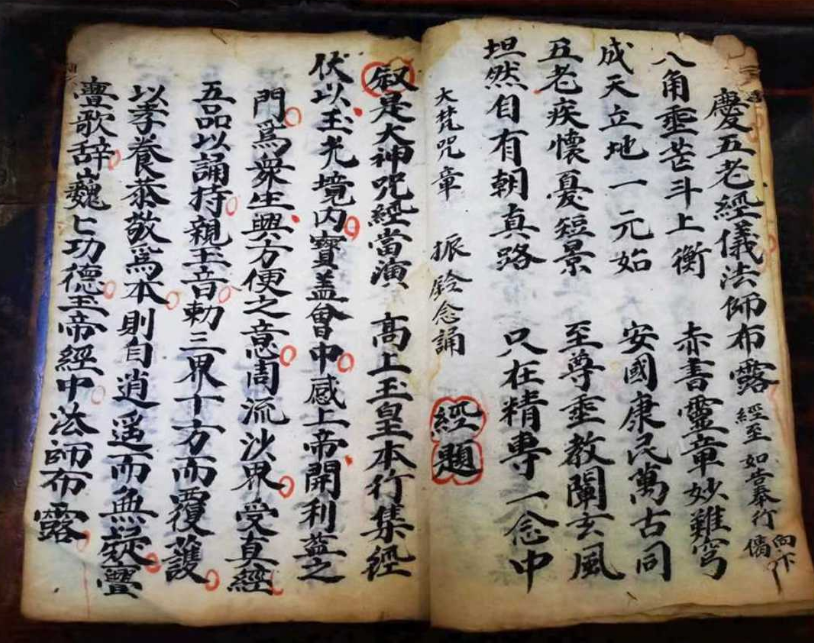 慶五老經儀法師布露 經至 如告奉行 向下
八角垂芒斗上衡 赤書靈章妙難窮
成天立地一元始 安國康民萬古同
五老疾懷憂短景 至尊垂教闡玄風
坦然自有朝真路 只在精專一念中
大梵咒章 振鈴念誦 經題
敘是大神咒經當演 高上玉皇本行集經
伏以玉光境内寶盖會中感上帝開利益之
門爲衆生興方便之意周流沙界受真經
五品以誦持親玉音勅三界十方而覆護
以孝養恭敬爲本則自逍遥而無礙
歌辭巍匕功德玉帝經中法師布露